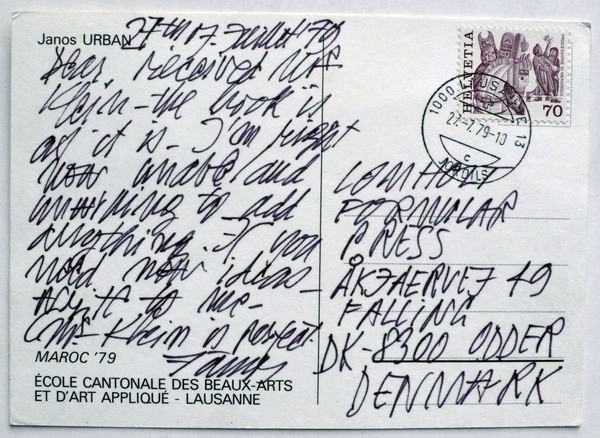 Janos URBAN 27th of Juillet 79
Dear received Mr
Klein - the book is
as it is. I'm right
now unable and
unwilling to add
anything. If you
need new ideas -
write to me -
Mr Klein is perfect.
Janos
MAROC '79
ÉCOLE CANTONALE DES BEAUX-ARTS
ET D'ART APPLIQUÉ - LAUSANNE
HELVETIA
70
1000 LAUSANNE 13
27.-7.79-10
C
FORMULAR
PRESS
ÅKJAERVEJ 49
FALLING
DK-8300 ODDER
DENMARK